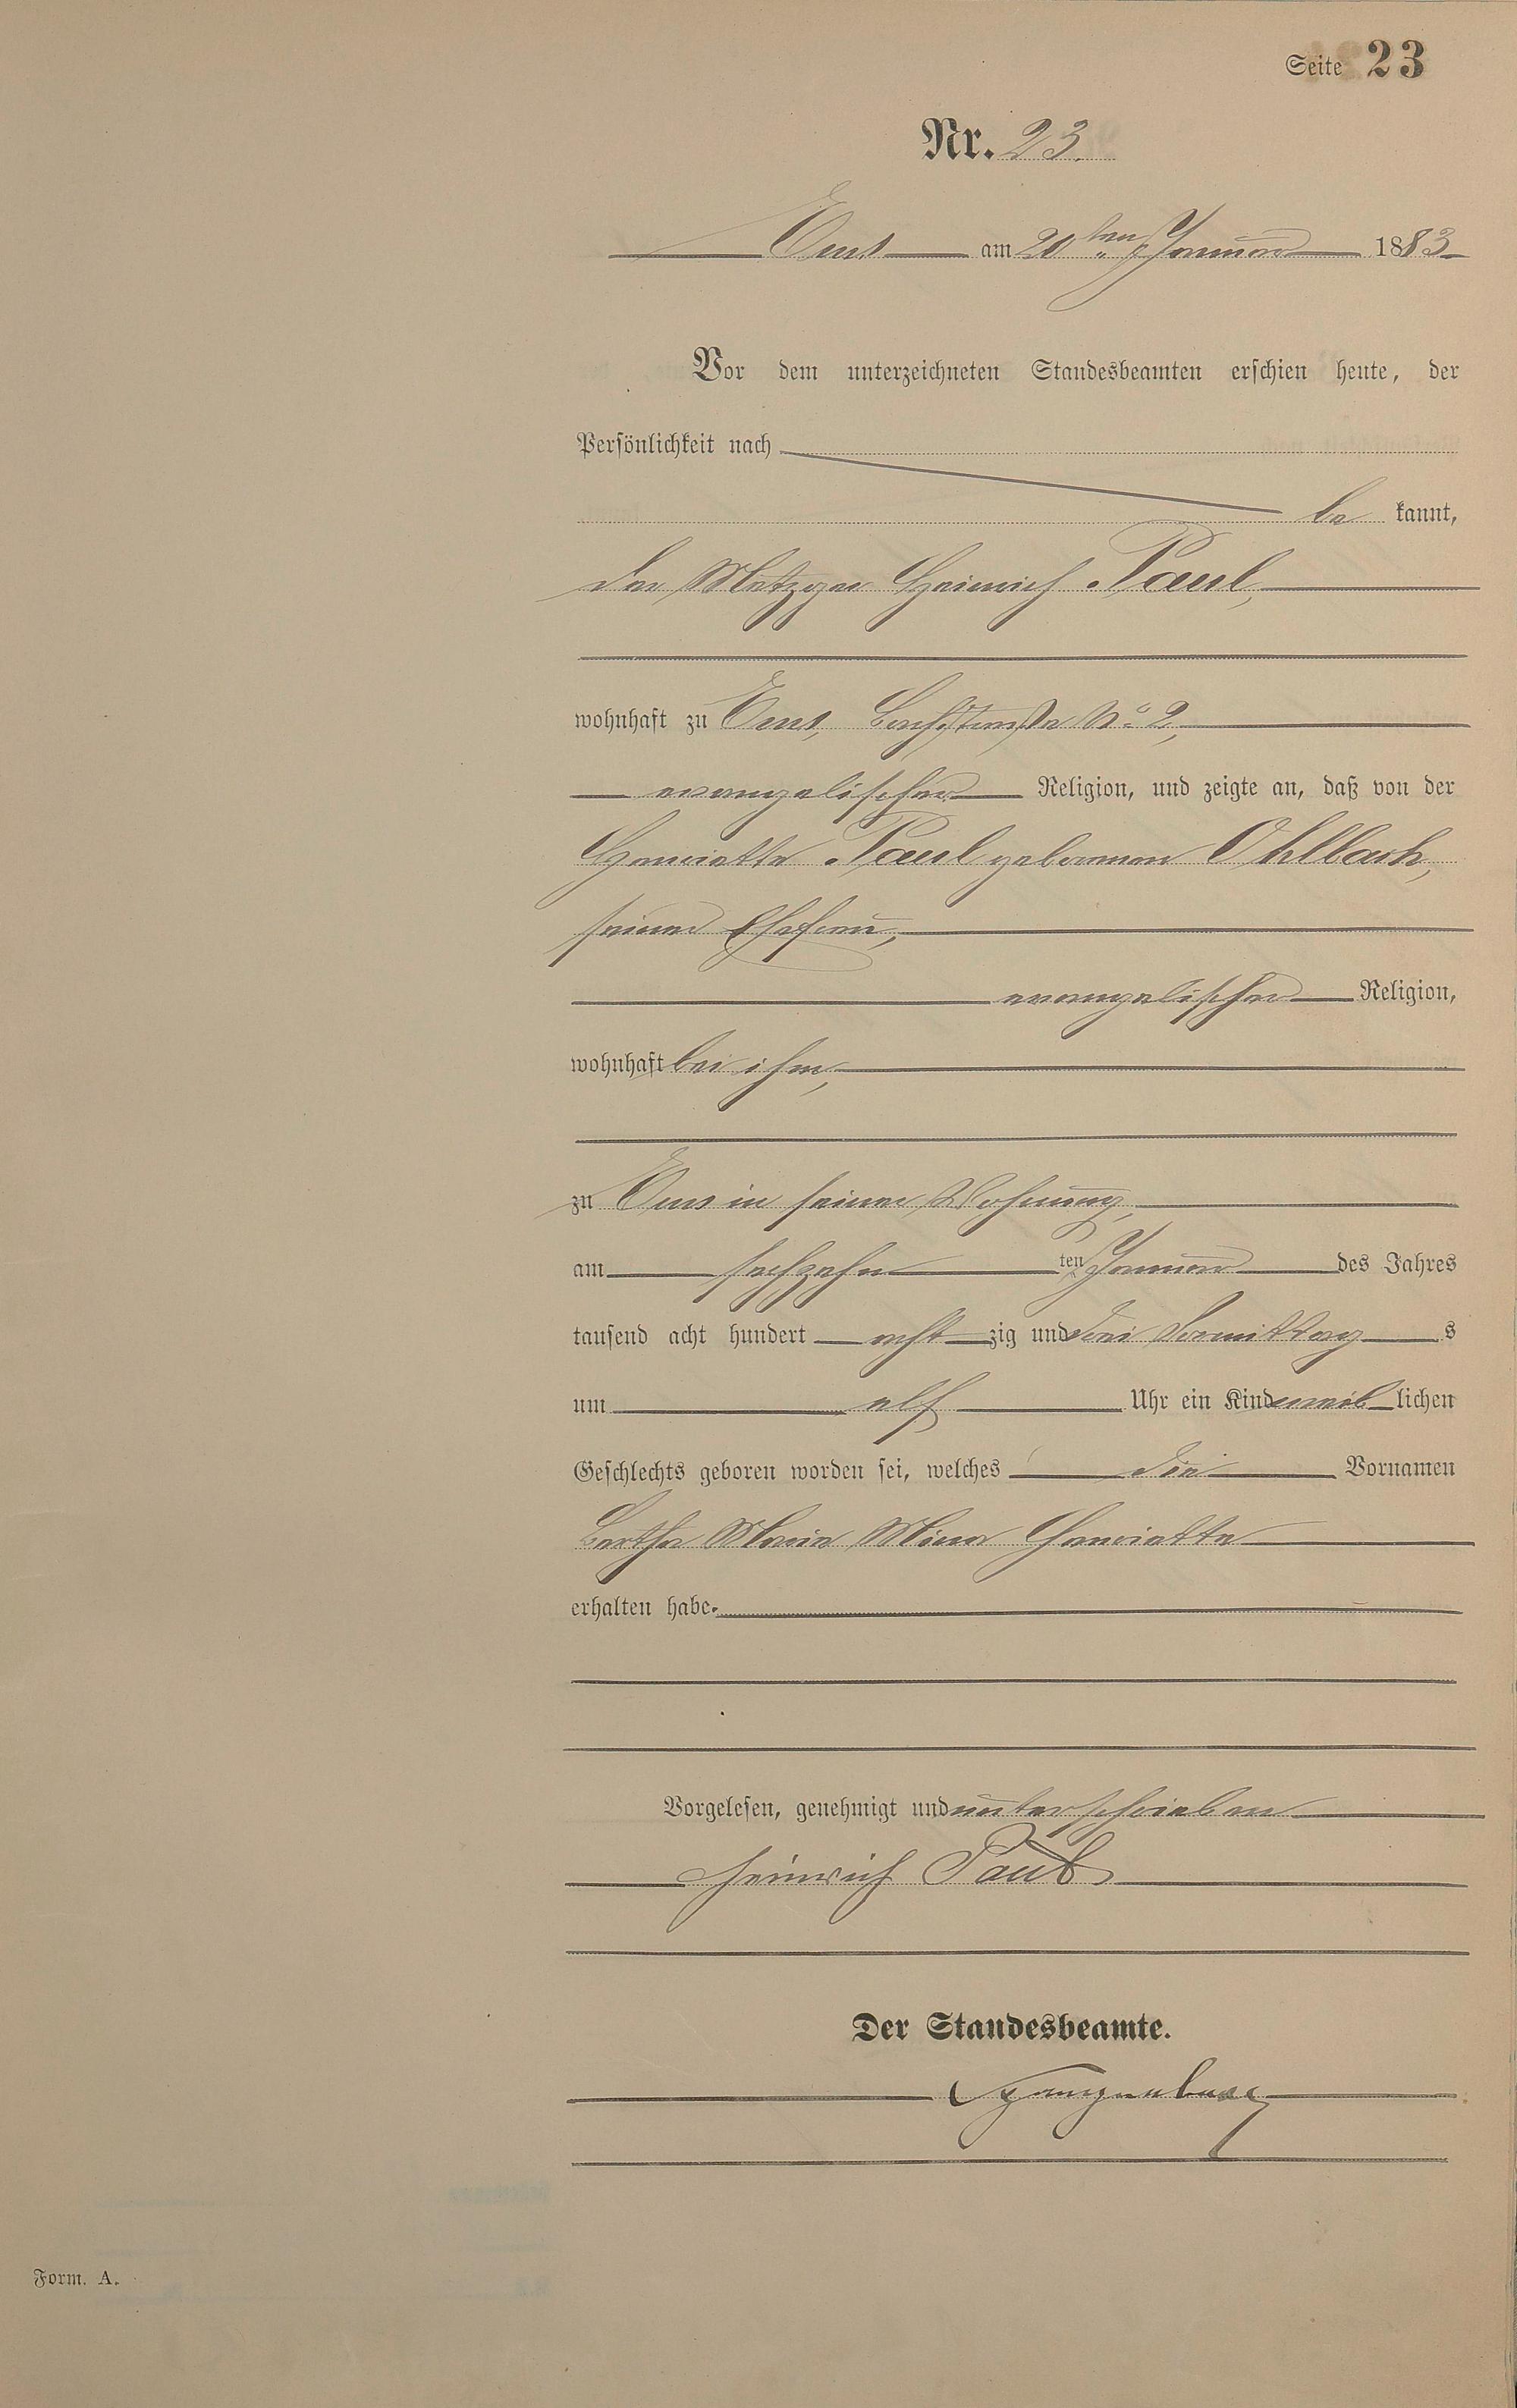 Seite 23
Nr. 23.
Ems am 20ten Januar 1883
Vor dem unterzeichneten Standesbeamten erschien heute, der
Persönlichkeit nach
be kannt,
der Metzger Heinrich Paul,
wohnhaft zu Ems, Bachstraße No. 2,
evangelischer Religion, und zeigte an, daß von der
Henriette Paul geborenen Ohlbach,
seiner Ehefrau,
evangelischer Religion,
wohnhaft bei ihm,
zu Ems in seiner Wohnung,
am sechzehn ten Januar des Jahres
tausend acht hundert acht zig und drei Vormittag s
um elf Uhr ein Kind weib lichen
Geschlechts geboren worden sei, welches die Vornamen
Bertha Maria Mina Henriette
erhalten habe.
Vorgelesen, genehmigt und unterschrieben
Heinrich Paul
Der Standesbeamte.
Spangenberg
Form. A.